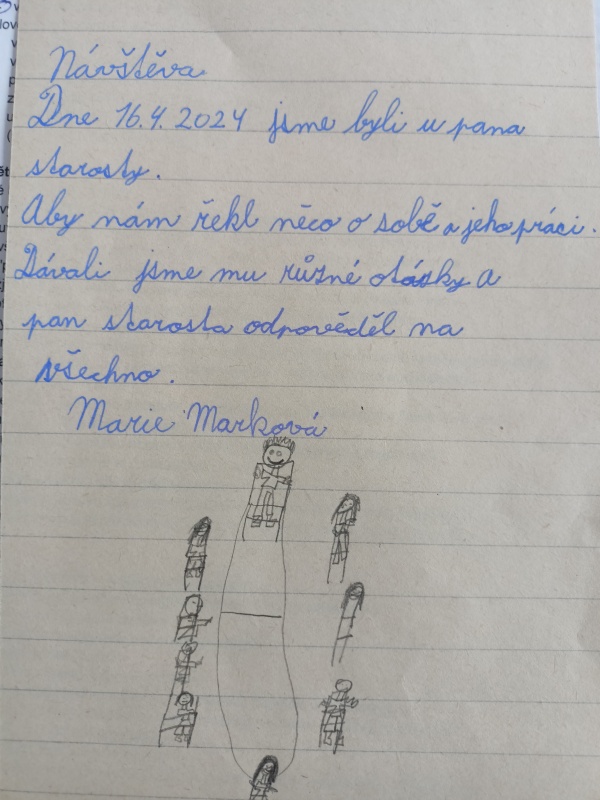 Návštěva
Dne 16.4.2024 jsme byli u pana
starosty.
Aby nám řekl něco o sobě a jeho práci.
Dávali jsme mu různé otásky a
pan starosta odpověděl na
všechno.
Marie Marková